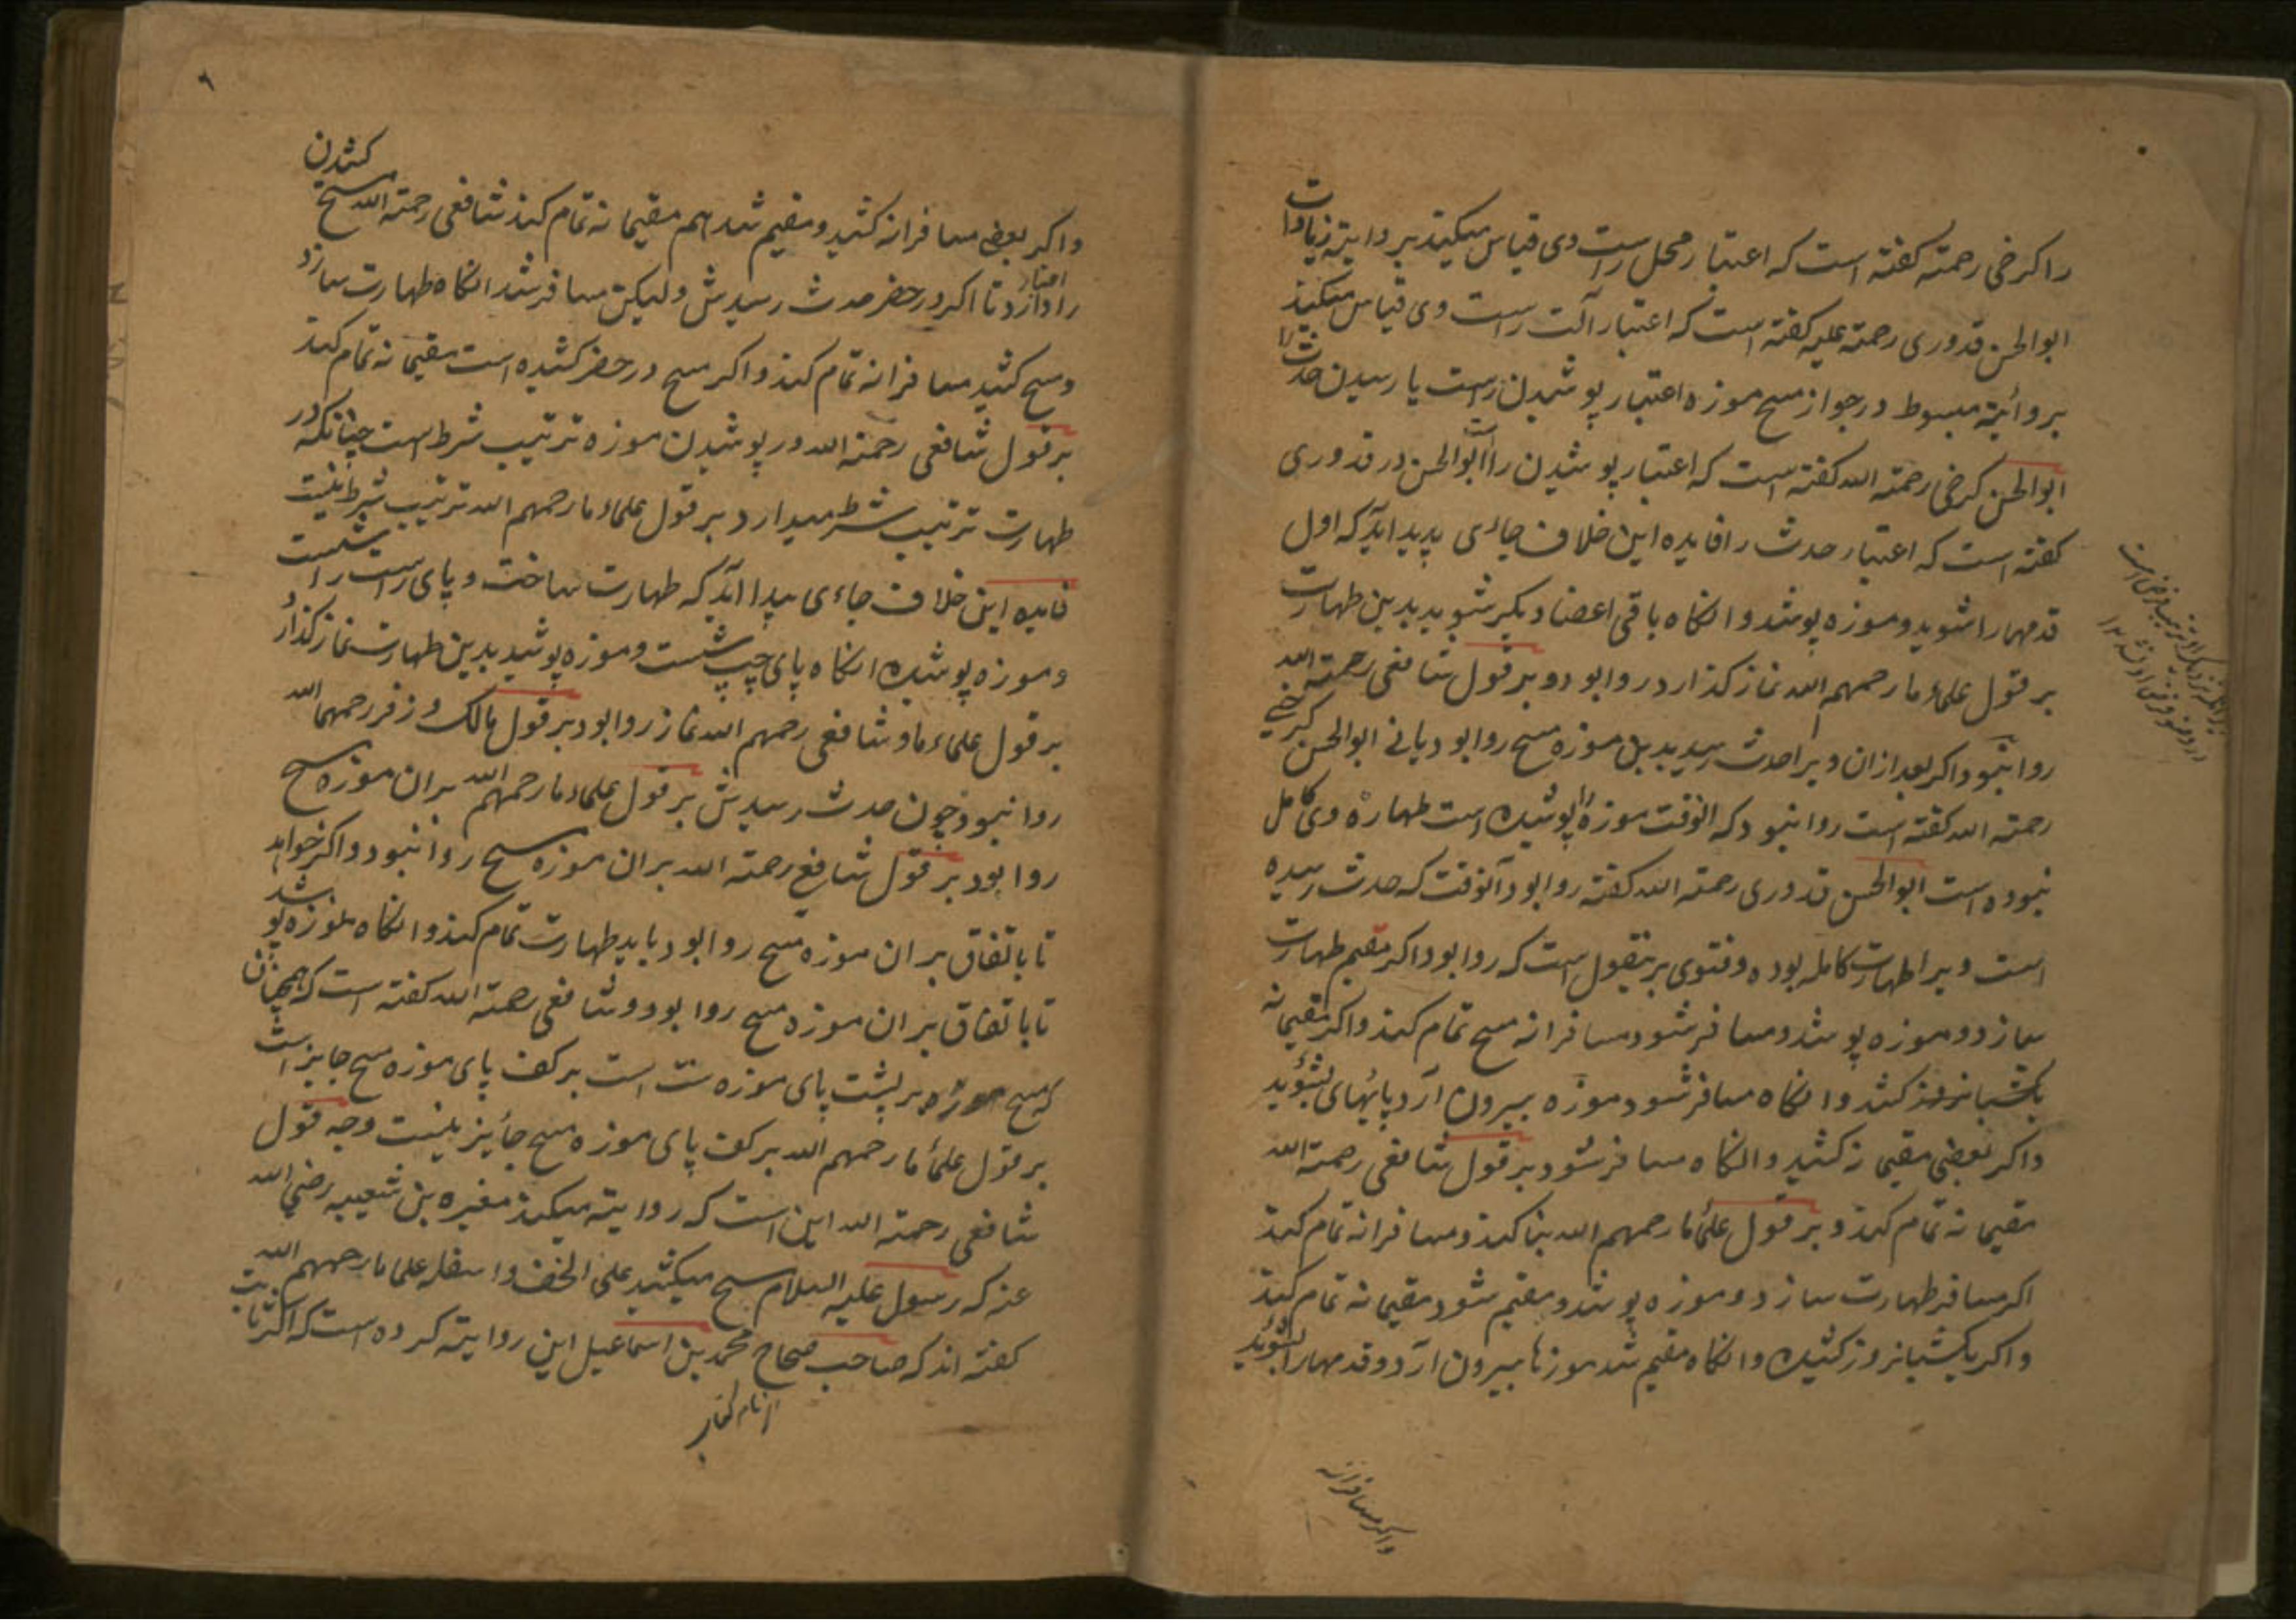 را کرخی رحمته کفته است که اعتبار محل راست وی قیاس میکیند بر دایته زیادات
ابوالحسن قدوری رحمته علیه کفته است که اعتبار آلت راست وی قیاس میکند
بروائیة مبسوط در جواز مسح موزه اعتبار پوشیدن راست یا رسیدن حدث را
ابوالحسن کرخی رحمته الله کفته است که اعتبار پوشیدن را ابوالحسن در قدوری
کفته است که اعتبار حدث را فایده این خلاف جاءی پدید اید که اول
قدمها را شوید و موزه پوشد و انکاه باقی اعضا دیکر شوید بدین طهارت
بر قول علماء ما رحمهم الله نماز کذارد روا بود و بر قول شافعی رحمته الله
روا نبود اکر بعد ازان ویرا حدث رسید بدین موزه مسح روا بود یا نے ابوالحسن کرخے
رحمته الله کفته است روا نبود که الوقت موزه را پوشیده است طهارة وی کامل
نبوده است ابوالحسن قدوری رحمته الله کفته روا بود آنوقت که حدث رسیده
است ویرا طهارت کامله بوده و فتوی برینقول است که روا بود اکر مقیم طهارت
سازد و موزه پوشد و مسافر شود مسافرانه مسح تمام کند واکر مقیمانه
یکشبانروز کشد و انکاه مسافر شود موزه بیرون آرد پایهای بشوید
واکر بعضی مقیمانه کشید و انکاه مسافر شود بر قول شافعی رحمته الله
مقیمانه تمام کند و بر قول علماء ما رحمهم الله بنا کند و مسافرانه تمام کند
اکر مسافر طهارت سازد و موزه پوشد و مقیم شود مقیمانه تمام کند
واکر یکشبانروز کشیده و انکاه مقیم شد موزها بیرون آرد و قدمها را بشوید
واکر مسافرانه
٦
واکر بعضی مسافرانه کشید و مقیم شد هم مقیمانه تمام کند شافعی رحمته الله مسح کشیدن
را اعتبار دارد تا اکر در حضر حدث رسیدش ولیکن مسافر شد انکاه طهارت سازد
ومسح کشید مسافرانه تمام کند واکر مسح در حضر کشیده است مقیمانه تمام کند
بر قول شافعی رحمته الله در پوشیدن موزه ترتیب شرط است چنانکه در
طهارت ترتیب شرط میدارد بر قول علماء ما رحمهم الله ترتیب شرط نیست
فایده این خلاف جاءی پیدا اید که طهارت ساخت و پای راست را شست
و موزه پوشیده انکاه پای چپ شست و موزه پوشید بدین طهارت نماز کذارد
بر قول علماء ما و شافعی رحمهم الله نماز روا بود بر قول مالک و زفر رحمهما الله
روا نبود چون حدث رسیدش بر قول علماء ما رحمهم الله بران موزه مسح
روا بود بر قول شافعی رحمته الله بران موزه مسح روا نبود واکر خواهد
تا باتفاق بران موزه مسح روا بود باید طهارت تمام کند و انکاه موزه پوشد
تا باتفاق بران موزه مسح روا بود و شافعی رحمته الله کفته است که همچنان
که مسح موزه بر پشت پای موزه سنت است بر کف پای موزه مسح جایز است
بر قول علماء ما رحمهم الله بر کف پای موزه مسح جائیز نیست وجه قول
شافعی رحمته الله این است که روایته میکند مغیره بن شعیبه رضی الله
عنه که رسول علیه السلام مسح میکشید علی الخف واسفله علما ما رحمهم الله
کفته اند که صاحب صحاح محمد بن اسماعیل این روایته کرده است که اکر ثابت